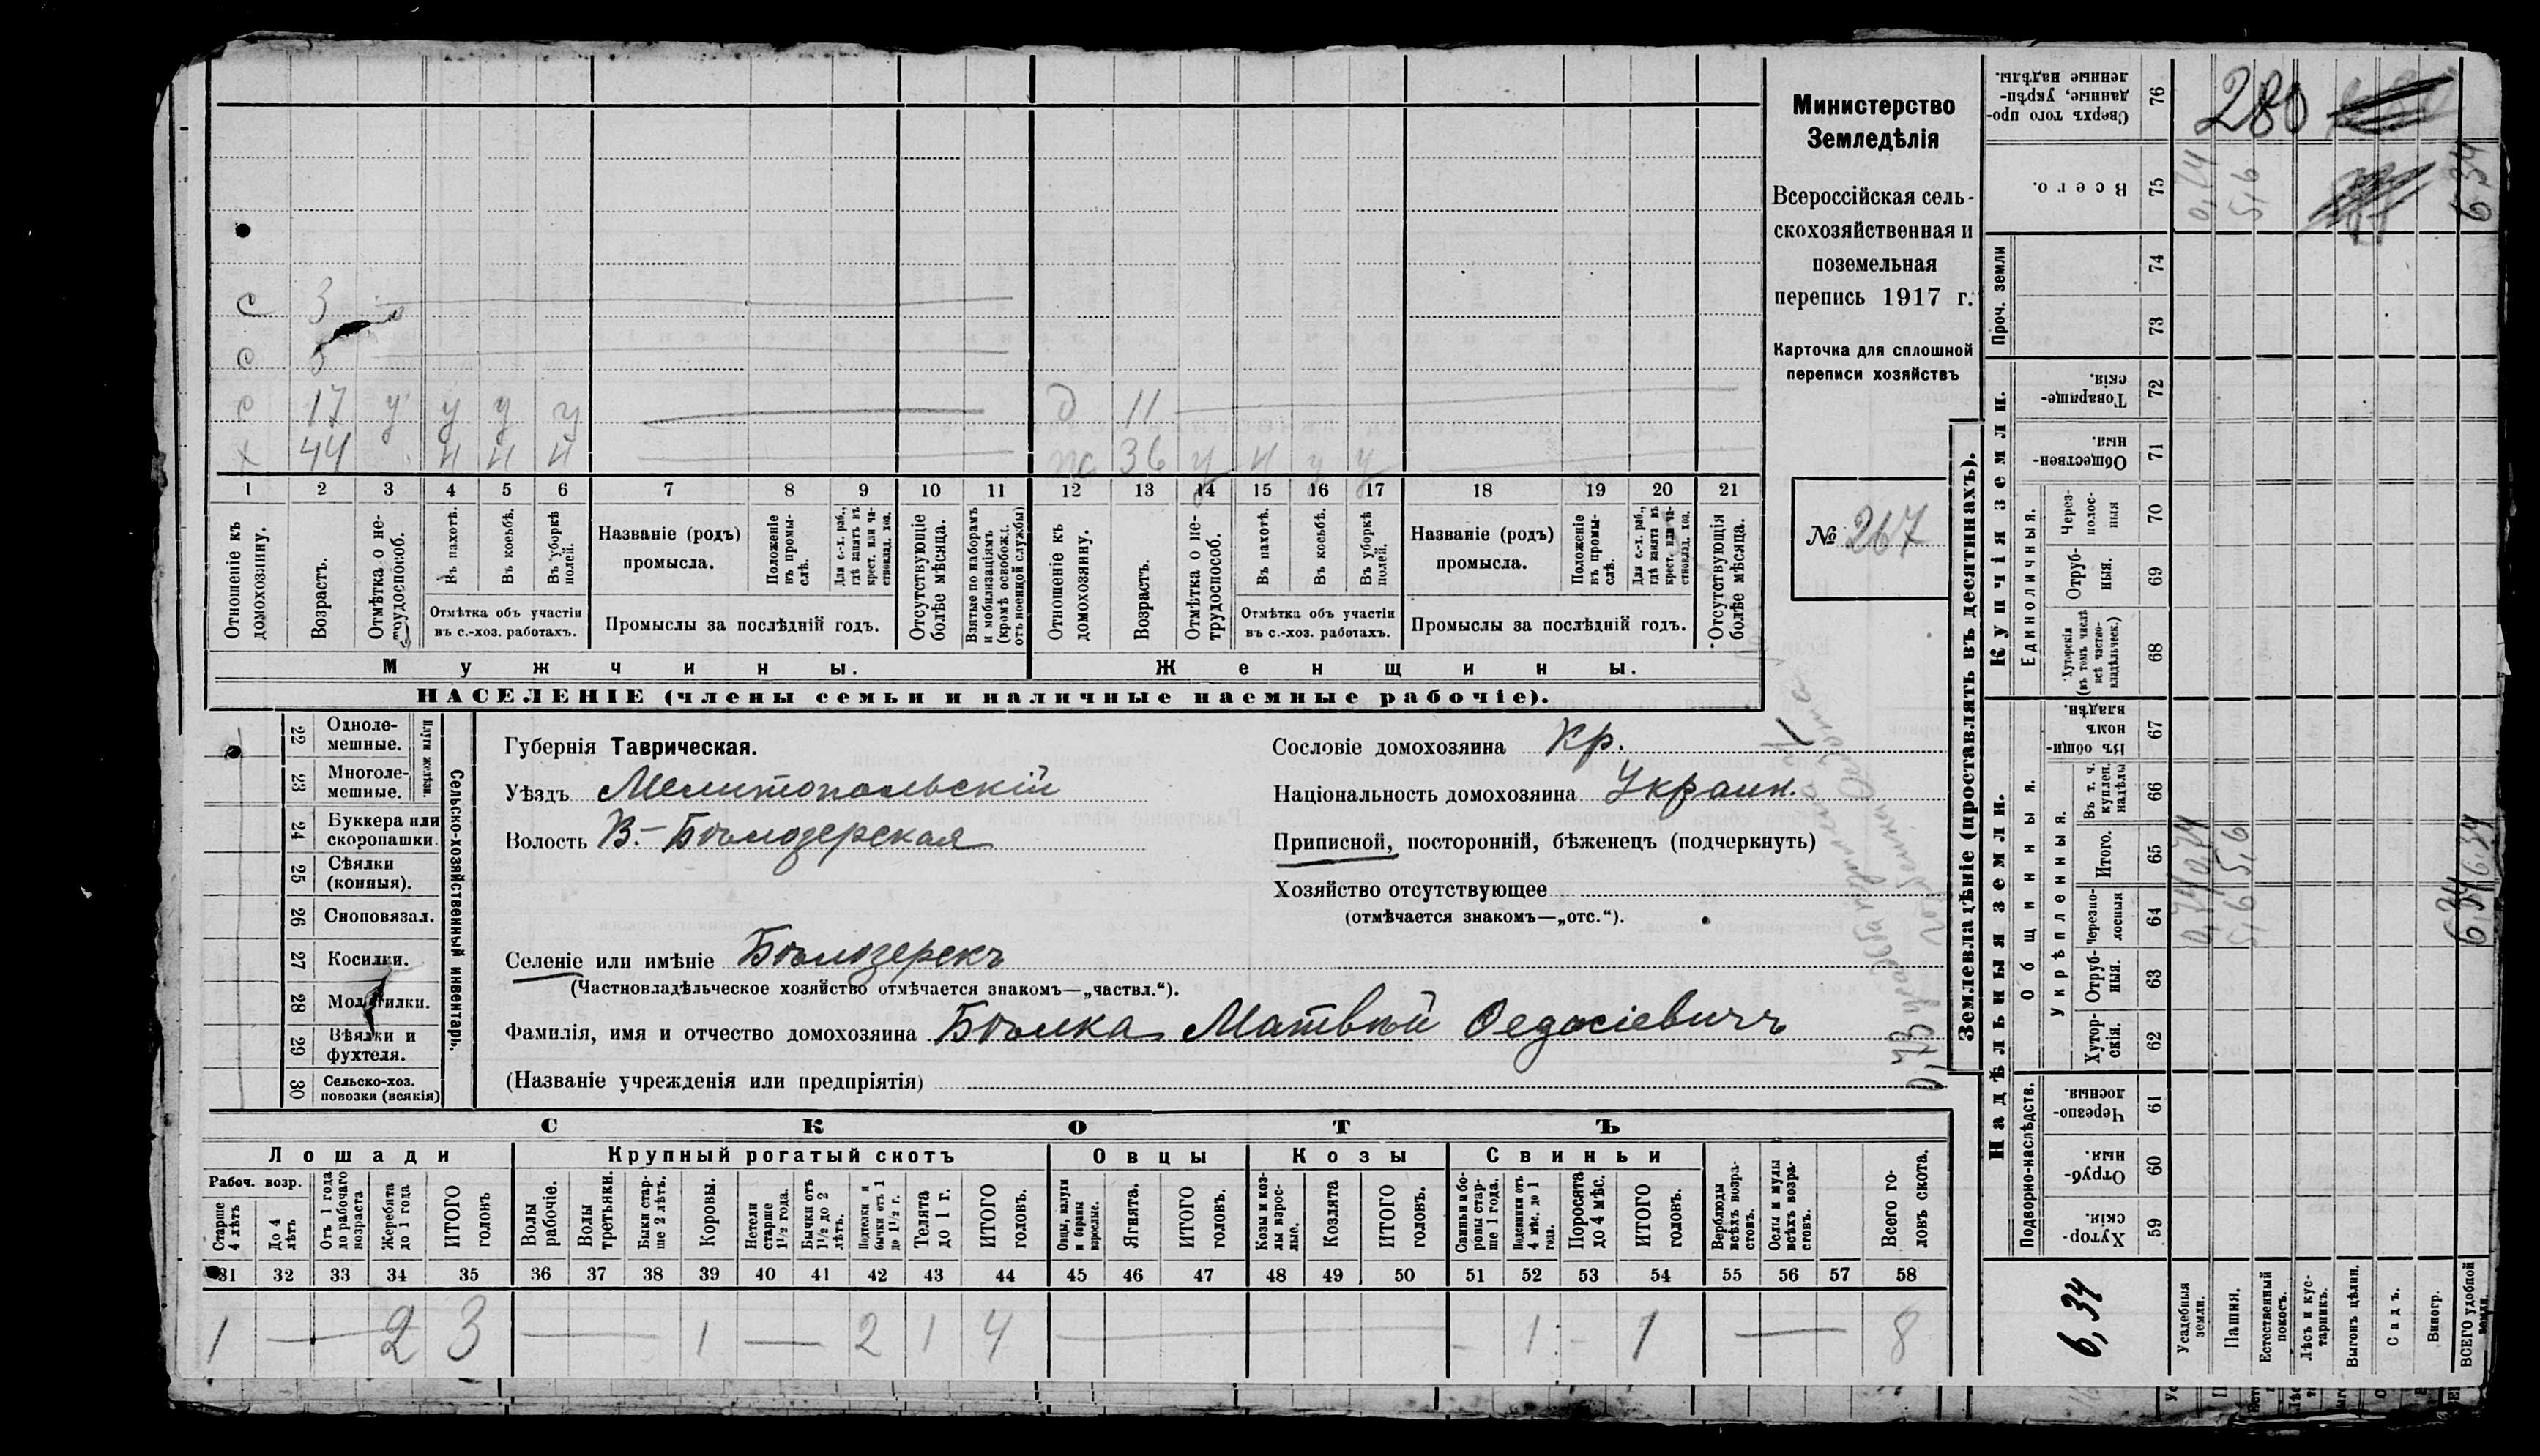 Министерство
Земледѣлія
Всероссійская сель-
скохозяйственная и
поземельная
перепись 1917 г.
Карточка для сплошной
переписи хозяйствъ
№ 267
с 3
с
с 17 у у у у д 11
х 44 н н н ж 36 у н у у
1 2 3 4 5 6 7 8 9 10 11 12 13 14 15 16 17 18 19 20 21
Отношеніе къ домохозяину.
Возрастъ.
Отмѣтка о не-трудоспособ.
Въ пахотѣ.
Въ косьбѣ.
Въ уборкѣ полей.
Отмѣтка объ участіи
въ с.-хоз. работахъ.
Названіе (родъ)
промысла.
Положеніе въ промы-слѣ.
Для с.-х. раб., гдѣ занятъ въ крест. или ча-стновлад. хоз.
Промыслы за послѣдній годъ.
Отсутствующіе болѣе мѣсяца.
Взятые по наборамъ и мобилизаціямъ (кромѣ освобожд. отъ военной службы)
Отношеніе къ домохозяину.
Возрастъ.
Отмѣтка о не-трудоспособ.
Въ пахотѣ.
Въ косьбѣ.
Въ уборкѣ полей.
Отмѣтка объ участіи
въ с.-хоз. работахъ.
Названіе (родъ)
промысла.
Положеніе въ промы-слѣ.
Для с.-х. раб., гдѣ занята въ крест. или ча-стновлад. хоз.
Промыслы за послѣдній годъ.
Отсутствующія болѣе мѣсяца.
Мужчины.
Женщины.
НАСЕЛЕНІЕ (члены семьи и наличные наемные рабочіе).
Сельско-хозяйственный инвентарь.
Плуги желѣзн.
22 Одноле-мешные.
23 Многоле-мешные.
24 Буккера или скоропашки.
25 Сѣялки (конныя).
26 Сноповязал.
27 Косилки.
28 Молотилки.
29 Вѣялки и фухтеля.
30 Сельско-хоз. повозки (всякія)
Губернія Таврическая.
Уѣздъ Мелитопольскій
Волость В.-Бѣлозерская
Сословіе домохозяина Кр.
Національность домохозяина Украин.
Приписной, посторонній, бѣженецъ (подчеркнуть)
Хозяйство отсутствующее
(отмѣчается знакомъ—„отс.“).
Селеніе или имѣніе Бѣлозерскъ
(Частновладѣльческое хозяйство отмѣчается знакомъ—„частвл.“).
Фамилія, имя и отчество домохозяина Бѣлка Матвѣй Федосіевичъ
(Названіе учрежденія или предпріятія)
СКОТЪ
Лошади
Крупный рогатый скотъ
Овцы
Козы
Свиньи
Рабоч. возр.
Старше 4 лѣтъ
До 4 лѣтъ
Отъ 1 года до рабочаго возраста
Жеребята до 1 года
ИТОГО головъ
Волы рабочіе.
Волы третьяки.
Быки стар-ше 2 лѣтъ.
Коровы.
Нетели старше 1½ года.
Бычки отъ 1½ до 2 лѣтъ.
Подтелки и бычки отъ 1 до 1½ г.
Телята до 1 г.
ИТОГО головъ.
Овцы, валухи и бараны взрослые.
Ягнята.
ИТОГО головъ.
Козы и коз-лы взрос-лые.
Козлята
ИТОГО головъ.
Свиньи и бо-ровы стар-ше 1 года.
Подсвинки отъ 4 мѣс. до 1 года.
Поросята до 4 мѣс.
ИТОГО головъ.
Верблюды всѣхъ возра-стовъ.
Ослы и мулы всѣхъ возра-стовъ.
Всего го-ловъ скота.
31 32 33 34 35 36 37 38 39 40 41 42 43 44 45 46 47 48 49 50 51 52 53 54 55 56 57 58
1 — 2 3 — 1 — 2 1 4 — - 1 - 1 — 8
Землевладѣніе (проставлять въ десятинахъ).
Купчія земли.
Надѣльныя земли.
Сверхъ того про-данные, укрѣп-ленные надѣлы. 76
Всего. 75
Проч. земли 74 73
Товарище-скія. 72
Обществен-ныя. 71
Единоличныя.
Через-полос-ныя 70
Отруб-ныя. 69
Хуторскія (въ томъ числѣ всѣ частно-владѣльческ.) 68
Общинныя.
Въ общин-номъ владѣн. 67
Укрѣпленныя.
Въ т. ч. куплен. надѣлы 66
Итого. 65
Черезпо-лосныя 64
Отруб-ныя. 63
Хутор-скія. 62
Подворно-наслѣдств.
Черезпо-лосныя. 61
Отруб-ныя. 60
Хутор-скія. 59
280
0,74 5,6 6,34
0,74 5,6 6,34
0,74 5,6 6,34
6,34
Усадебныя земли.
Пашня.
Естественный покосъ.
Лѣсъ и кус-тарникъ.
Выгонъ цѣлин.
Садъ.
Виногр.
ВСЕГО удобной земли.